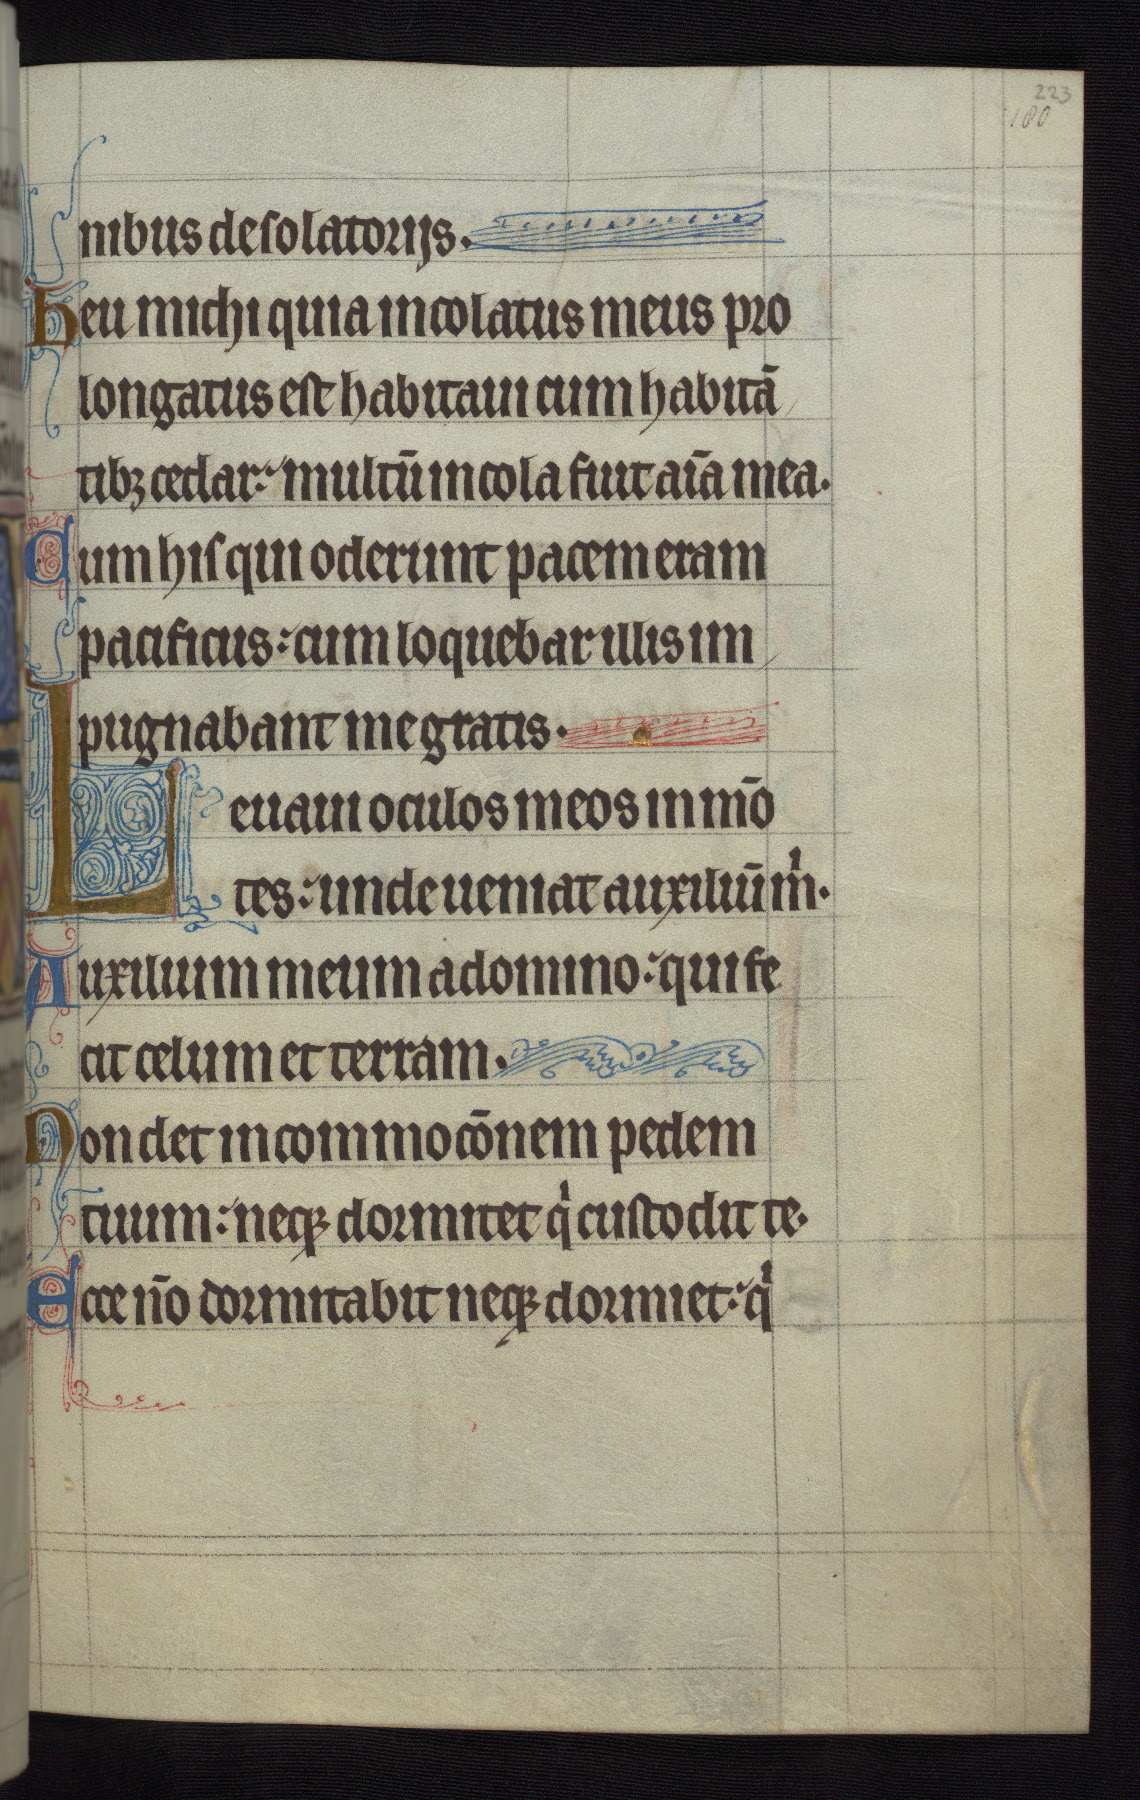 223
180
nibus desolatorijs.
Heu michi quia incolatus meus pro
longatus est habitaui cum habitā
tibꝫ cedar: multū incola fuit aīa mea.
Cum hiſ qui oderunt pacem eram
pacificus: cum loquebar illis im
pugnabant me gratis.
Leuaui oculos meos in mō
tes: unde ueniat auxiliū m̍.
Auxilium meum a domino: qui fe
cit celum et terram.
Non det in commocōnem pedem
tuum: neqꝫ dormitet q̍ custodit te.
Ecce nō dormitabit neqꝫ dormiet: q̍